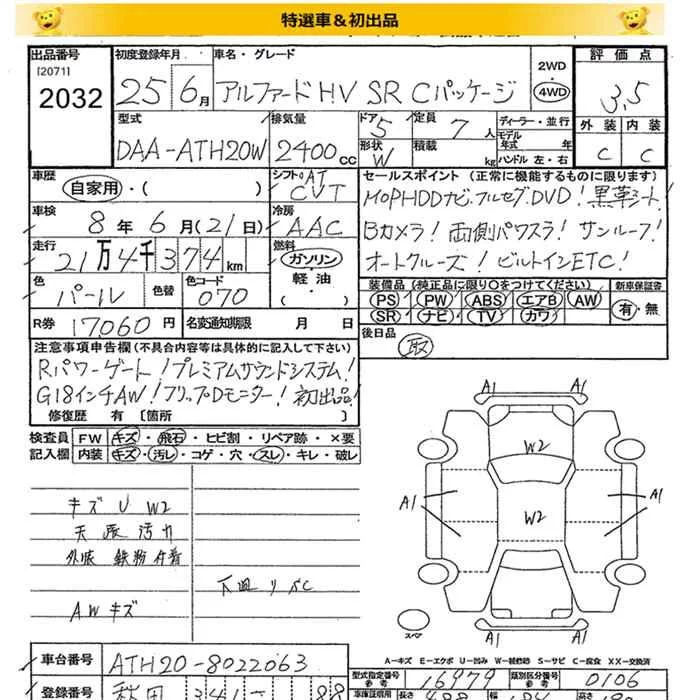 特選車&初出品
出品番号
[2071]
2032
初度登録年月
25 6月
車名・グレード
アルファードHV SR Cパッケージ
2WD
4WD
評価点
3.5
外装 内装
C C
型式
DAA-ATH20W
排気量
2400cc
ドア
5
形状
W
定員
7人
積載
kg
ディーラー・並行
モデル年式 年
ハンドル 左・右
車歴
自家用・( )
シフト
AT
CVT
車検
8年6月(21日)
冷房
AAC
走行
21万4千374km
燃料
ガソリン
軽油
色
パール
色替
色コード
070
R券 17060円
名変通知期限 月 日
セールスポイント (正常に機能するものに限ります)
MOPHDDナビ.フルセグ.DVD!黒革シート!
Bカメラ!両側パワスラ!サンルーフ!
オートクルーズ!ビルトインETC!
装備品(純正品に限り〇をつけてください)
PS PW ABS エアB AW
SR ナビ TV カワ
新車保証書
有・無
後日品
取
注意事項申告欄(不具合内容等は具体的に記入して下さい)
Rパワーゲート!プレミアムサウンドシステム!
G18インチAW!フリップDモニター!初出品!
修復歴 有 [箇所 ]
検査員記入欄
FW キズ・飛石・ヒビ割・リペア跡・×要
内装 キズ・汚レ・コゲ・穴・スレ・キレ・破レ
キズ U W2
天張汚れ
外底 鉄粉付着
AWキズ
下回リサビ
A1 A1
W2
A1 A1
W2
A1 A1
A1 A1
スペア
A-キズ E-エクボ U-凹み W-補修跡 S-サビ C-腐食 XX-交換済
車台番号
ATH20-8022063
型式指定番号
参考
16979
類別区分番号
参考
0106
登録番号
秋田 341 88
長さ
幅
高さ